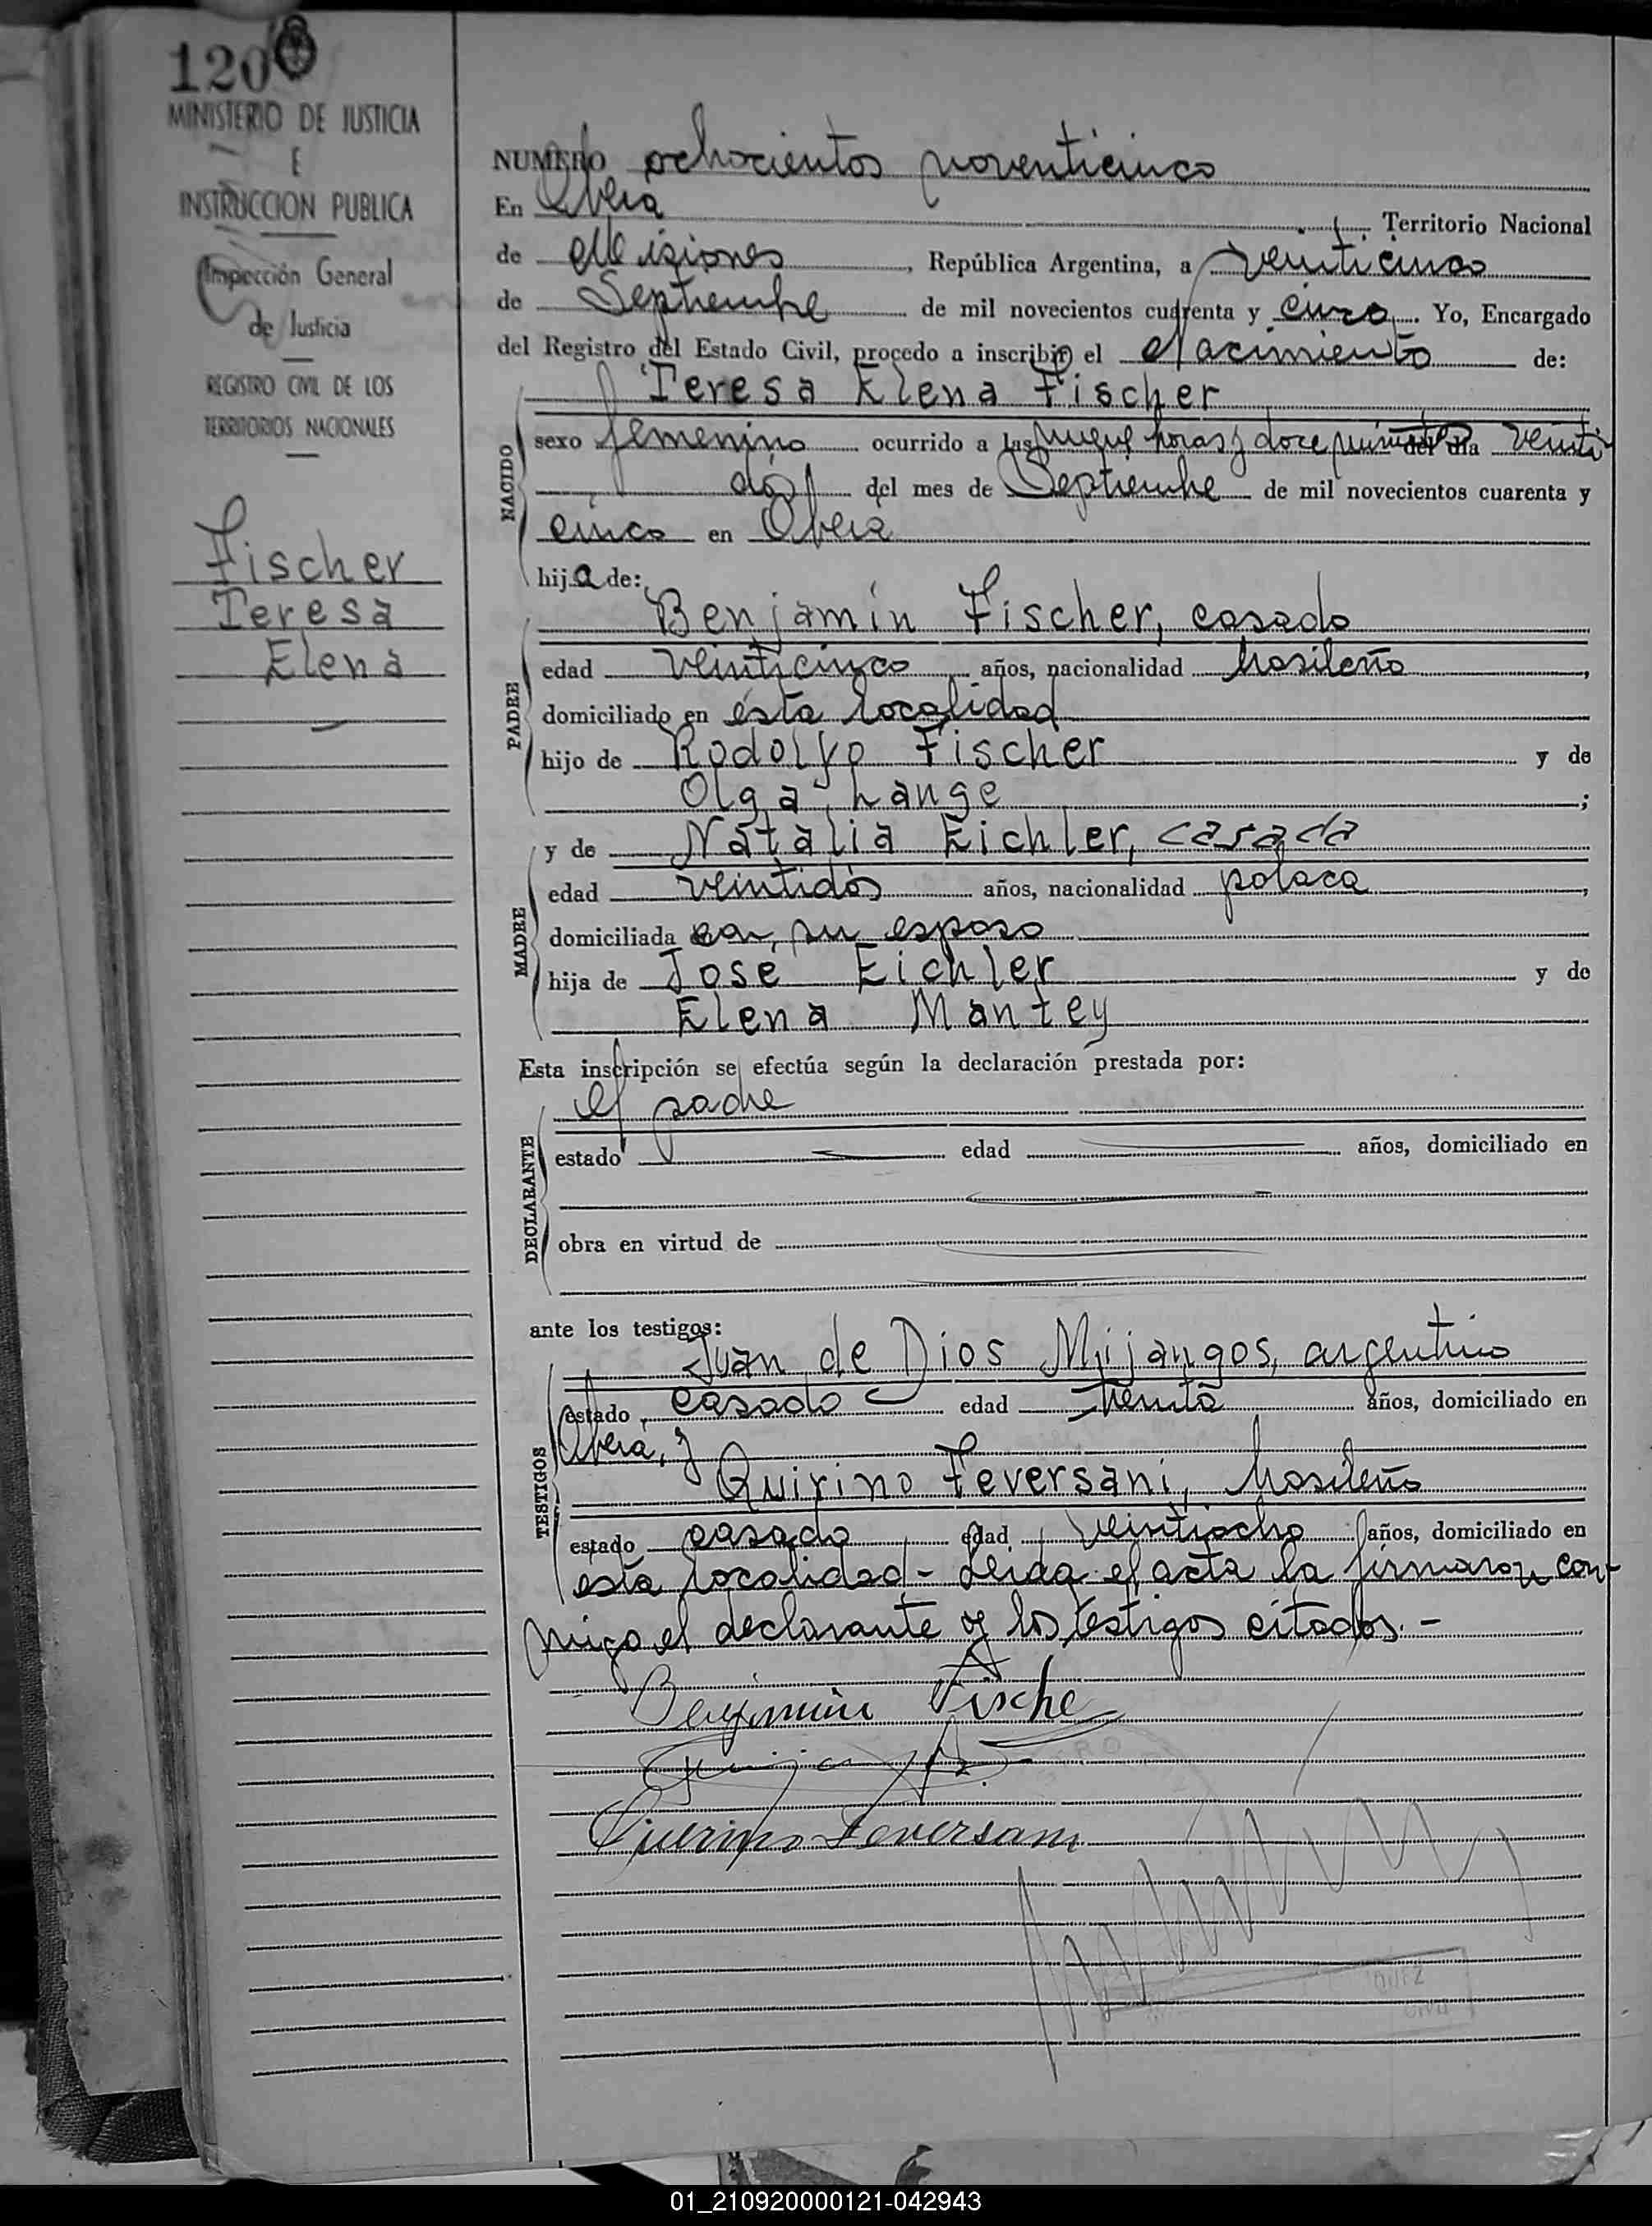 120
MINISTERIO DE JUSTICIA
E
INSTRUCCION PUBLICA
Inspección General
de Justicia
REGISTRO CIVIL DE LOS
TERRITORIOS NACIONALES
Fischer
Teresa
Elena
NUMERO ochocientos noventicinco
En Oberá Territorio Nacional
de Misiones, República Argentina, a veinticinco
de Septiembre de mil novecientos cuarenta y cinco. Yo, Encargado
del Registro del Estado Civil, procedo a inscribir el Nacimiento de:
Teresa Elena Fischer
NACIDO
sexo femenino ocurrido a las nueve horas y doce minutos del día veinti
dós del mes de Septiembre de mil novecientos cuarenta y
cinco en Oberá
hija de:
Benjamín Fischer, casado
PADRE
edad veinticinco años, nacionalidad brasileño,
domiciliado en ésta localidad
hijo de Rodolfo Fischer y de
Olga Lange;
y de Natalia Eichler, casada
MADRE
edad veintidós años, nacionalidad polaca,
domiciliada con su esposo
hija de José Eichler y de
Elena Mantey
Esta inscripción se efectúa según la declaración prestada por:
DECLARANTE
el padre
estado edad años, domiciliado en
obra en virtud de
ante los testigos:
TESTIGOS
Juan de Dios Mijangos, argentino
estado casado edad treinta años, domiciliado en
Oberá, y
Quirino Feversani, brasileño
estado casado edad veintiocho años, domiciliado en
esta localidad - Leida el acta la firmaron con-
migo el declarante y los testigos citados. -
Benjamin Fische
Quirino Feversani
01_210920000121-042943